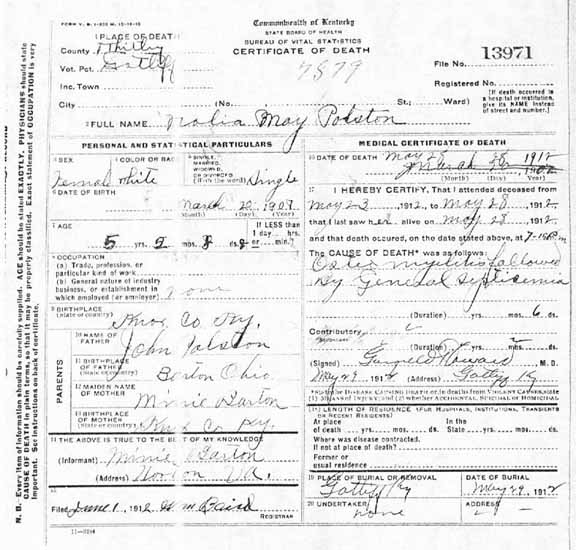 FORM V. S. 1-
Commonwealth of Kentucky
STATE BOARD OF HEALTH
BUREAU OF VITAL STATISTICS
CERTIFICATE OF DEATH
1 PLACE OF DEATH
County Whitley
Vot. Pct. Gatliff
7879
File No. 13971
Inc. Town
Registered No.
City (No. St.; Ward)
[If death occurred in a hospital or institution, give its NAME instead of street and number.]
2 FULL NAME May Polston
PERSONAL AND STATISTICAL PARTICULARS
3 SEX
Female
COLOR OR RACE
White
5 SINGLE, MARRIED, WIDOWED, OR DIVORCED
(Write the word) Single
6 DATE OF BIRTH
March 190
(Month) (Day) (Year)
7 AGE
5 yrs. 2 mos. 8 ds. or min.?
If LESS than 1 day hrs.
8 OCCUPATION
(a) Trade, profession, or particular kind of work
(b) General nature of industry business, or establishment in which employed (or employer)
9 BIRTHPLACE
(State or country) Knox Co Ky.
PARENTS
10 NAME OF FATHER John Polston
11 BIRTHPLACE OF FATHER
(State or country) Ohio
12 MAIDEN NAME OF MOTHER Minie Barton
13 BIRTHPLACE OF MOTHER
(State or country) Knox Co Ky.
14 THE ABOVE IS TRUE TO THE BEST OF MY KNOWLEDGE
(Informant) Minie Barton
(Address)
15
Filed June 1, 1912 Baird
REGISTRAR
MEDICAL CERTIFICATE OF DEATH
16 DATE OF DEATH May 28 1912
(Month) (Day) (Year)
17 I HEREBY CERTIFY, That I attended deceased from
May 23 1912, to May 28 1912,
that I last saw her alive on May 28 1912
and that death occured, on the date stated above, at 7-15 P m.
The CAUSE OF DEATH* was as follows:
Osteo myelitis followed
by General Septicemia
(Duration) yrs. mos. 6 ds.
Contributory
(Duration) yrs. mos. ds.
(Signed) Howard M. D.
May 29 1912 (Address) Gatliff Ky
(1) MEANS OF INJURY; and (2) whether ACCIDENTAL, SUICIDAL or HOMICIDAL
18 LENGTH OF RESIDENCE (FOR HOSPITALS, INSTITUTIONS, TRANSIENTS OR RECENT RESIDENTS)
At place of death yrs. mos. ds. In the State yrs. mos. ds.
Where was disease contracted.
If not at place of death?
Former or usual residence
19 PLACE OF BURIAL OR REMOVAL
Gatliff Ky
DATE OF BURIAL
May 29, 1912
20 UNDERTAKER
None
ADDRESS
N. B. Every item of information should be carefully supplied. AGE should be stated EXACTLY. PHYSICIANS should state
CAUSE OF DEATH in plain terms, so that it may be properly classified. Exact statement of OCCUPATION is very
important. See instructions on back of certificate.